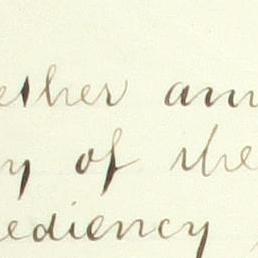 ether ann
y of the
ediency